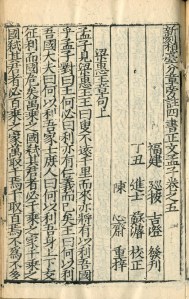 新分章旁註四書正文孟子卷之五
福建 巡按 吉澄 刊
丁丑 進士 蘇濬 校正
陳 心齋 重梓
梁惠王章句上
孟子見梁惠王王曰叟不遠千里而來亦將有以利吾國
乎孟子對曰王何必曰利亦有仁義而已矣王曰何以利
吾國大夫曰何以利吾家士庶人曰何以利吾身上下交
征利而國危矣萬乘之國弒其君者必千乘之家千乘之
國弒其君者必百乘之家萬取千焉千取百焉不為不多